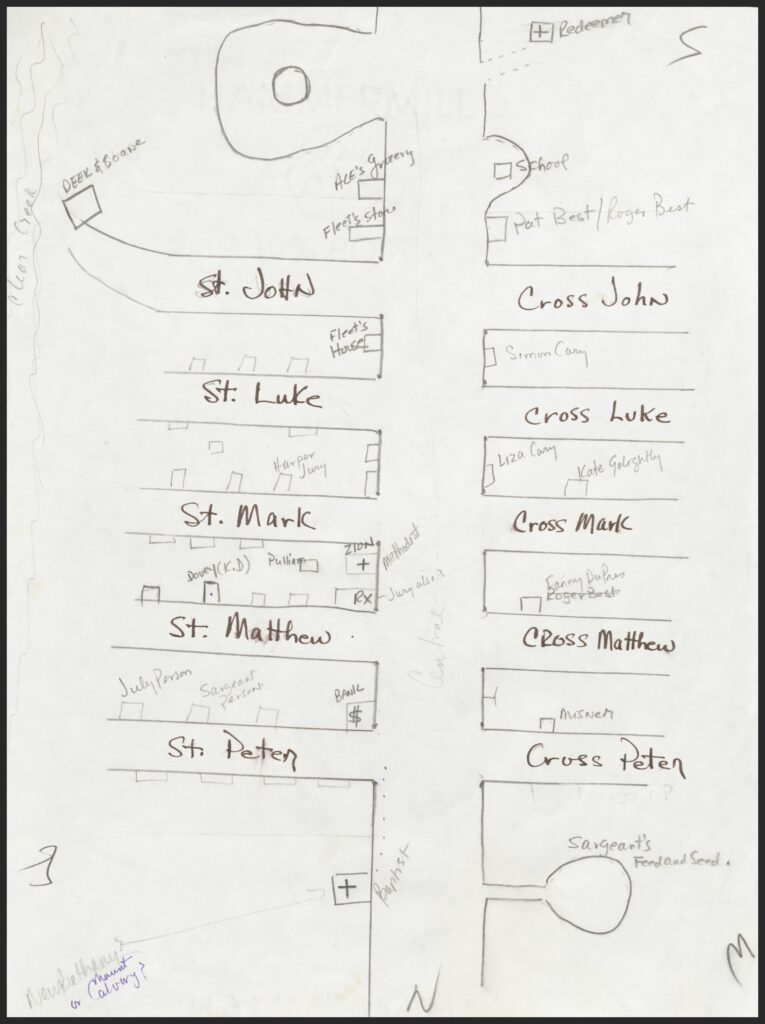 Redeemer
S
DEEK & SOANE
Clear Creek
ACE's Grocery
School
Fleet's Store
Pat Best/Roger Best
St. JOHN
Cross John
Fleet's
House
Simon Cary
St. Luke
Cross Luke
Harper
Jury
Liza Cary
Kate Golightly
St. Mark
Cross Mark
ZION
+
Methodist
Dovey (K.D)
Pulliam
RX
Jury also?
Fanny DuPres
Roger Best
St. Matthew
CROSS Matthew
Central
July Person
Sargeant
Person
BANK
$
MISNER
St. Peter
Cross Peter
Sargeant's
Feed and Seed.
E
Baptist
New Bethany?
or Mount
Calvary?
N
W